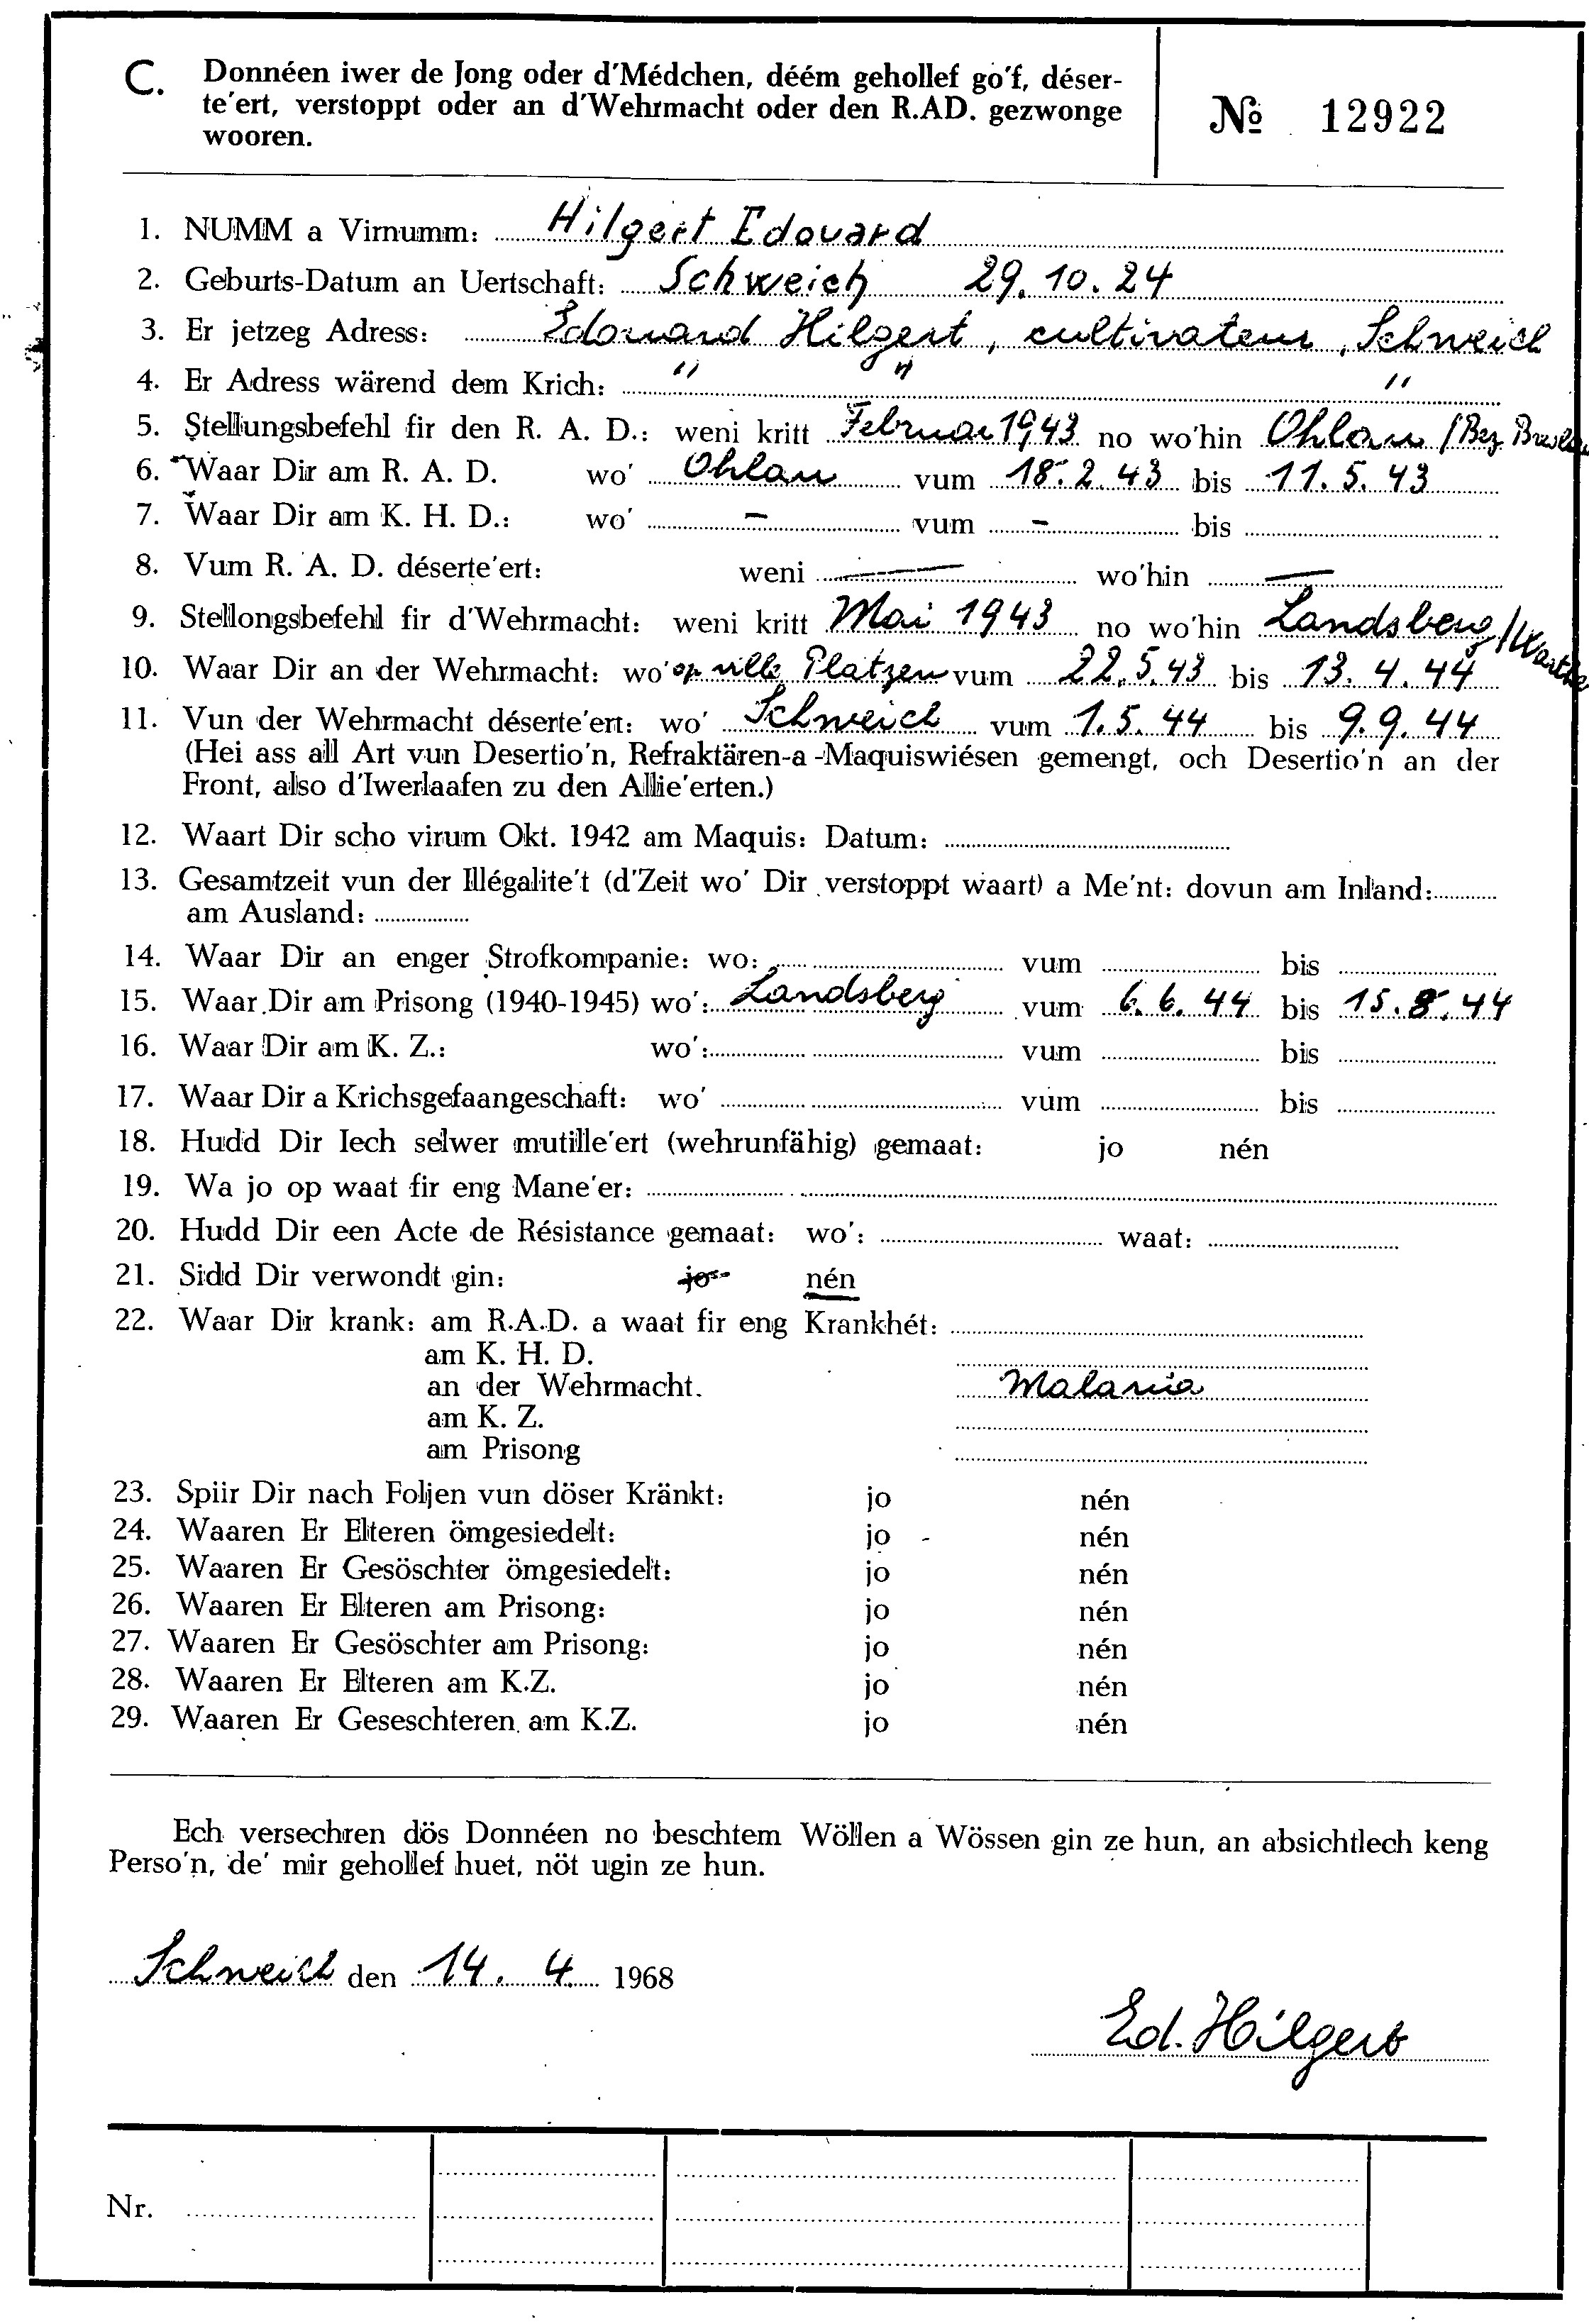 C. Donnéen iwer de Jong oder d'Médchen, déém gehollef go'f, déser-
te'ert, verstoppt oder an d'Wehrmacht oder den R.AD. gezwonge
wooren.
№ 12922
1. NUMM a Virnumm: Hilgert Edouard
2. Geburts-Datum an Uertschaft: Schweich 29.10.24
3. Er jetzeg Adress: Edouard Hilgert, cultivateur, Schweich
4. Er Adress wärend dem Krich: " " "
5. Stellungsbefehl fir den R. A. D.: weni kritt Februar 1943 no wo'hin Ohlau / Bez. Breslau
6. Waar Dir am R. A. D. wo' Ohlau vum 18.2.43 bis 11.5.43
7. Waar Dir am K. H. D.: wo' – vum – bis
8. Vum R. A. D. déserte'ert: weni — wo'hin —
9. Stellongsbefehl fir d'Wehrmacht: weni kritt Mai 1943 no wo'hin Landsberg/Warthe
10. Waar Dir an der Wehrmacht: wo' op ville Platzen vum 22.5.43 bis 13.4.44
11. Vun der Wehrmacht déserte'ert: wo' Schweich vum 1.5.44 bis 9.9.44
(Hei ass all Art vun Desertio'n, Refraktären-a -Maquiswiésen gemengt, och Desertio'n an der
Front, also d'Iwerlaafen zu den Allie'erten.)
12. Waart Dir scho virum Okt. 1942 am Maquis: Datum:
13. Gesamtzeit vun der Illégalite't (d'Zeit wo' Dir verstoppt waart) a Me'nt: dovun am Inland:
am Ausland:
14. Waar Dir an enger Strofkompanie: wo: vum bis
15. Waar Dir am Prisong (1940-1945) wo': Landsberg vum 6.6.44 bis 15.8.44
16. Waar Dir am K. Z.: wo': vum bis
17. Waar Dir a Krichsgefaangeschaft: wo' vum bis
18. Hudd Dir Iech selwer mutille'ert (wehrunfähig) gemaat: jo nén
19. Wa jo op waat fir eng Mane'er:
20. Hudd Dir een Acte de Résistance gemaat: wo': waat:
21. Sidd Dir verwondt gin: jo nén
22. Waar Dir krank: am R.A.D. a waat fir eng Krankhét:
am K. H. D.
an der Wehrmacht. Malaria
am K. Z.
am Prisong
23. Spiir Dir nach Foljen vun döser Kränkt: jo nén
24. Waaren Er Elteren ömgesiedelt: jo nén
25. Waaren Er Gesöschter ömgesiedelt: jo nén
26. Waaren Er Elteren am Prisong: jo nén
27. Waaren Er Gesöschter am Prisong: jo nén
28. Waaren Er Elteren am K.Z. jo nén
29. Waaren Er Geseschteren am K.Z. jo nén
Ech versechren dös Donnéen no beschtem Wöllen a Wössen gin ze hun, an absichtlech keng
Perso'n, de' mir gehollef huet, nöt ugin ze hun.
Schweich den 14. 4. 1968
Ed. Hilgert
Nr.